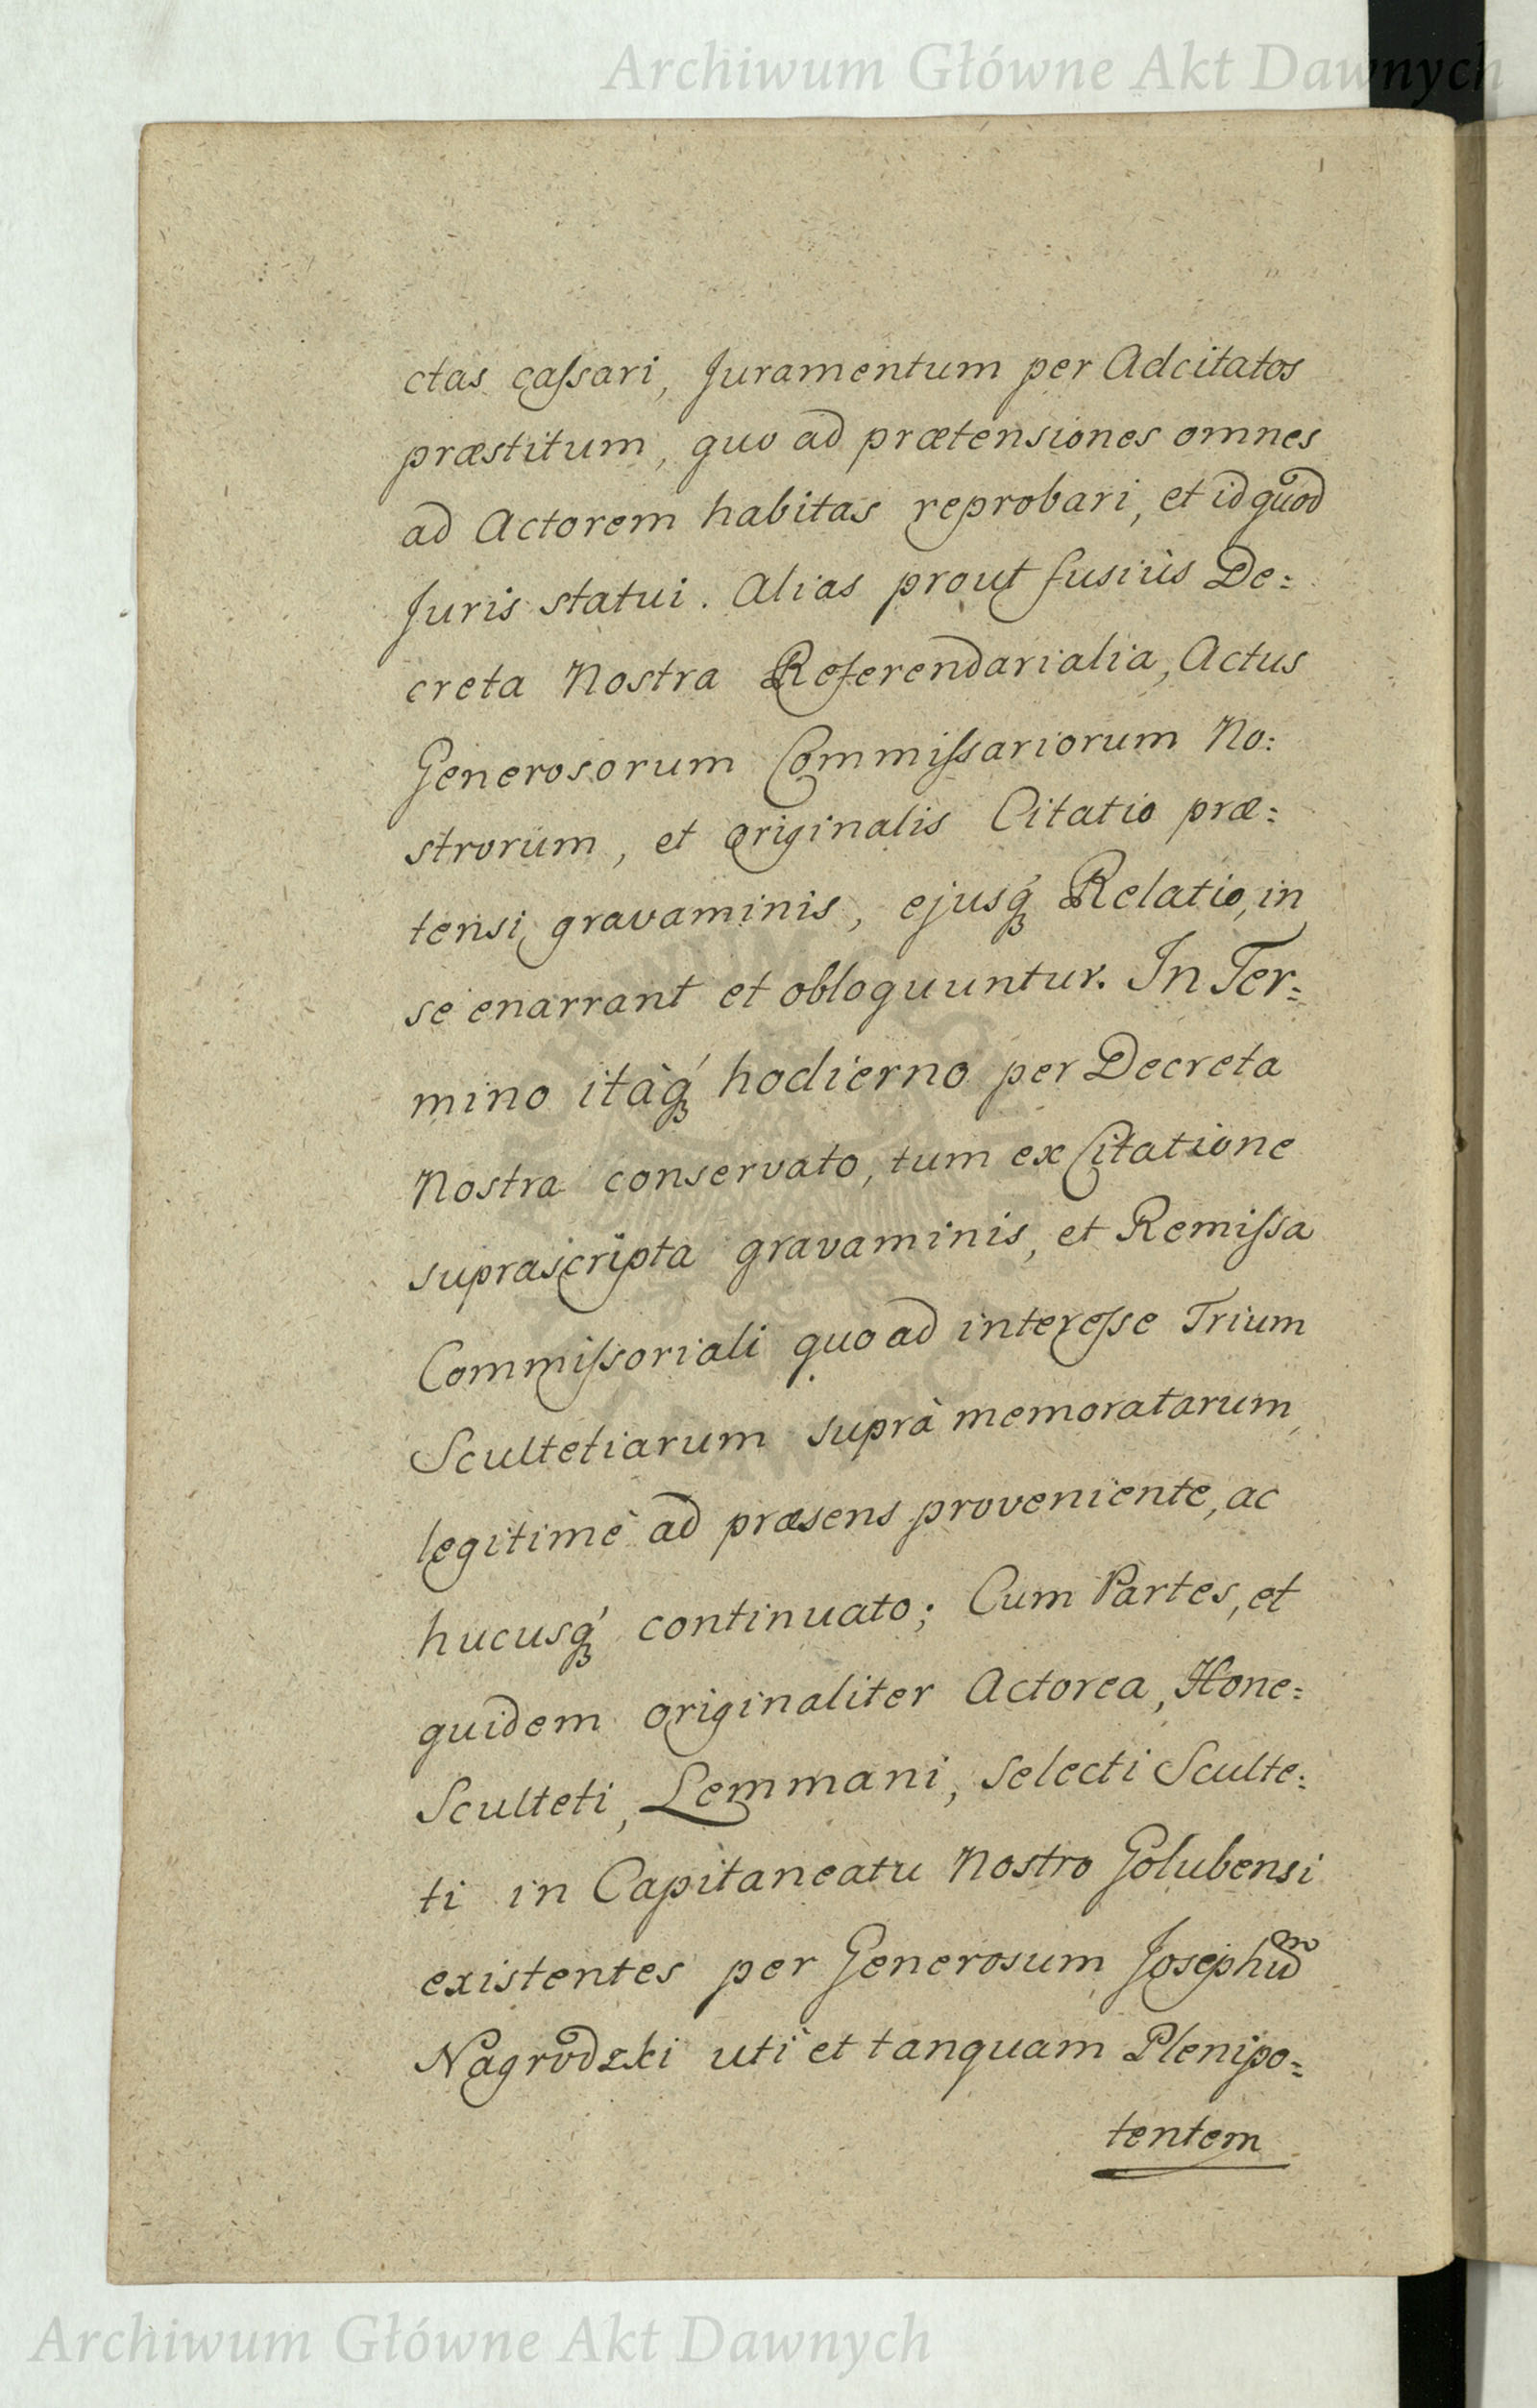 Archiwum Główne Akt Dawnych
ctas caſsari, Juramentum per Adcitatos
præstitum, quo ad prætensiones omnes
ad Actorem habitas reprobari, et id quod
Juris statui. Alias prout fusiùs De=
creta Nostra Referendarialia, Actus
Generosorum Commiſsariorum No=
strorum, et originalis Citatio præ=
tensi gravaminis, ejusq́ꝫ Relatio, in
se enarrant et obloquuntur. In Ter=
mino itàq́ꝫ hodierno per Decreta
Nostra conservato, tum ex Citatione
suprascripta gravaminis, et Remiſsa
Commiſsoriali quo ad intereſse Trium
Scultetiarum suprà memoratarum
legitimè ad præsens proveniente, ac
hucusq́ꝫ continuato; Cum Partes, et
quidem originaliter Actorea, Hone=
Sculteti, Lemmani, selecti Sculte=
ti in Capitaneatu Nostro Golubensi
existentes per Generosum Josephum
Nagrodzki uti et tanquam Plenipo=
tentem
Archiwum Główne Akt Dawnych